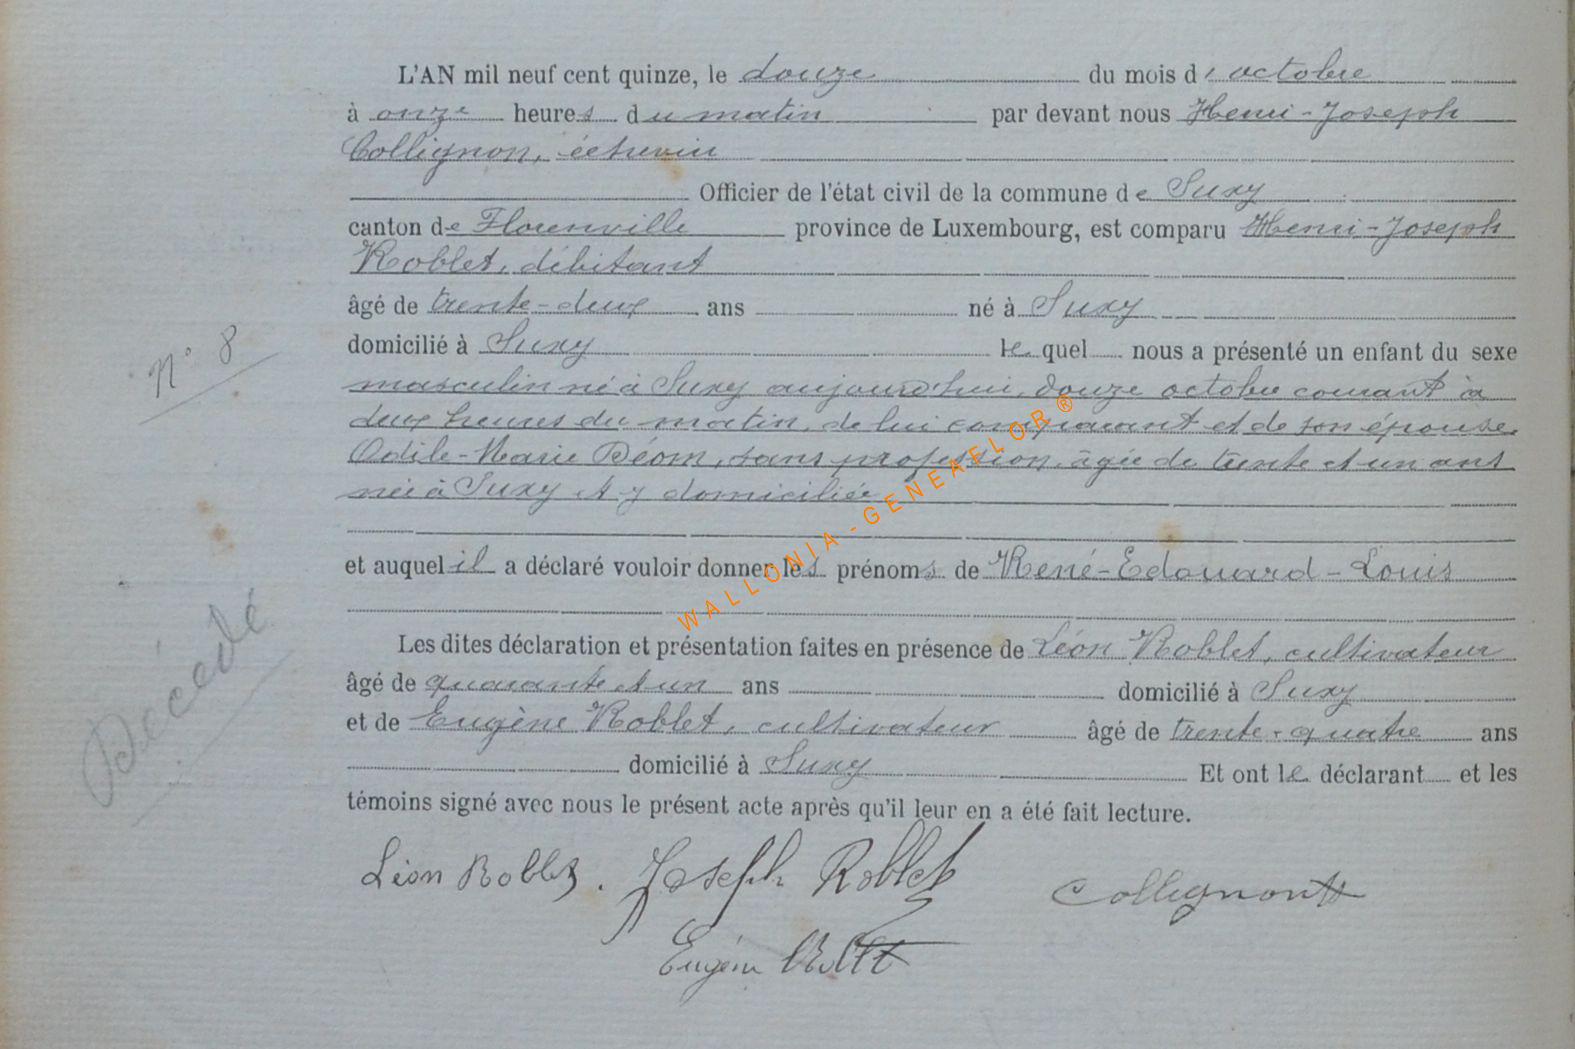 L'AN mil neuf cent quinze, le douze du mois d'octobre
à onze heures du matin par devant nous Henri-Joseph
Collignon, échevin
Officier de l'état civil de la commune de Suxy
canton de Florenville province de Luxembourg, est comparu Henri-Joseph
Roblet, débitant
âgé de trente-deux ans né à Suxy
domicilié à Suxy lequel nous a présenté un enfant du sexe
N° 8
masculin né à Suxy aujourd'hui, douze octobre courant à
deux heures du matin, de lui comparant et de son épouse,
Odile-Marie Déom, sans profession, âgée de trente et un ans
née à Suxy et y domiciliée
WALLONIA - GENEAFLOR ®
et auquel il a déclaré vouloir donner les prénoms de René-Edouard-Louis
Les dites déclaration et présentation faites en présence de Léon Roblet, cultivateur
âgé de quarante et un ans domicilié à Suxy
et de Eugène Roblet, cultivateur âgé de trente-quatre ans
Décédé
domicilié à Suxy Et ont le déclarant et les
témoins signé avec nous le présent acte après qu'il leur en a été fait lecture.
Léon Roblet. Joseph Roblet Collignon
Eugène Roblet